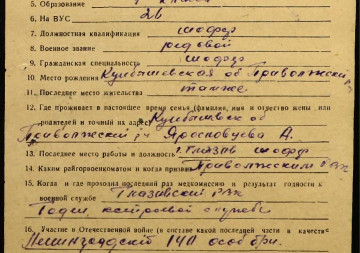 5. Образование
6. На ВУС 2в
7. Должностная квалификация шофер
8. Военное звание рядовой
9. Гражданская специальность шофер
10. Место рождения Куйбышевская об Приволжский
11. Последнее место жительства также
12. Где проживает в настоящее время семья (фамилие, имя и отчество жены или
родителей и точный их адрес) Куйбышевск об
Приволжский
13. Последнее место работы и должность шофер
14. Каким райгорвоенкоматом и когда призван Приволжским
15. Когда и где проходил последний раз медкомиссию и результат годности к
военной службе Глазовский РВК
Годен, к строевой службе
16. Участие в Отечественной войне (в составе какой последней части и качестве)
Ленинградский